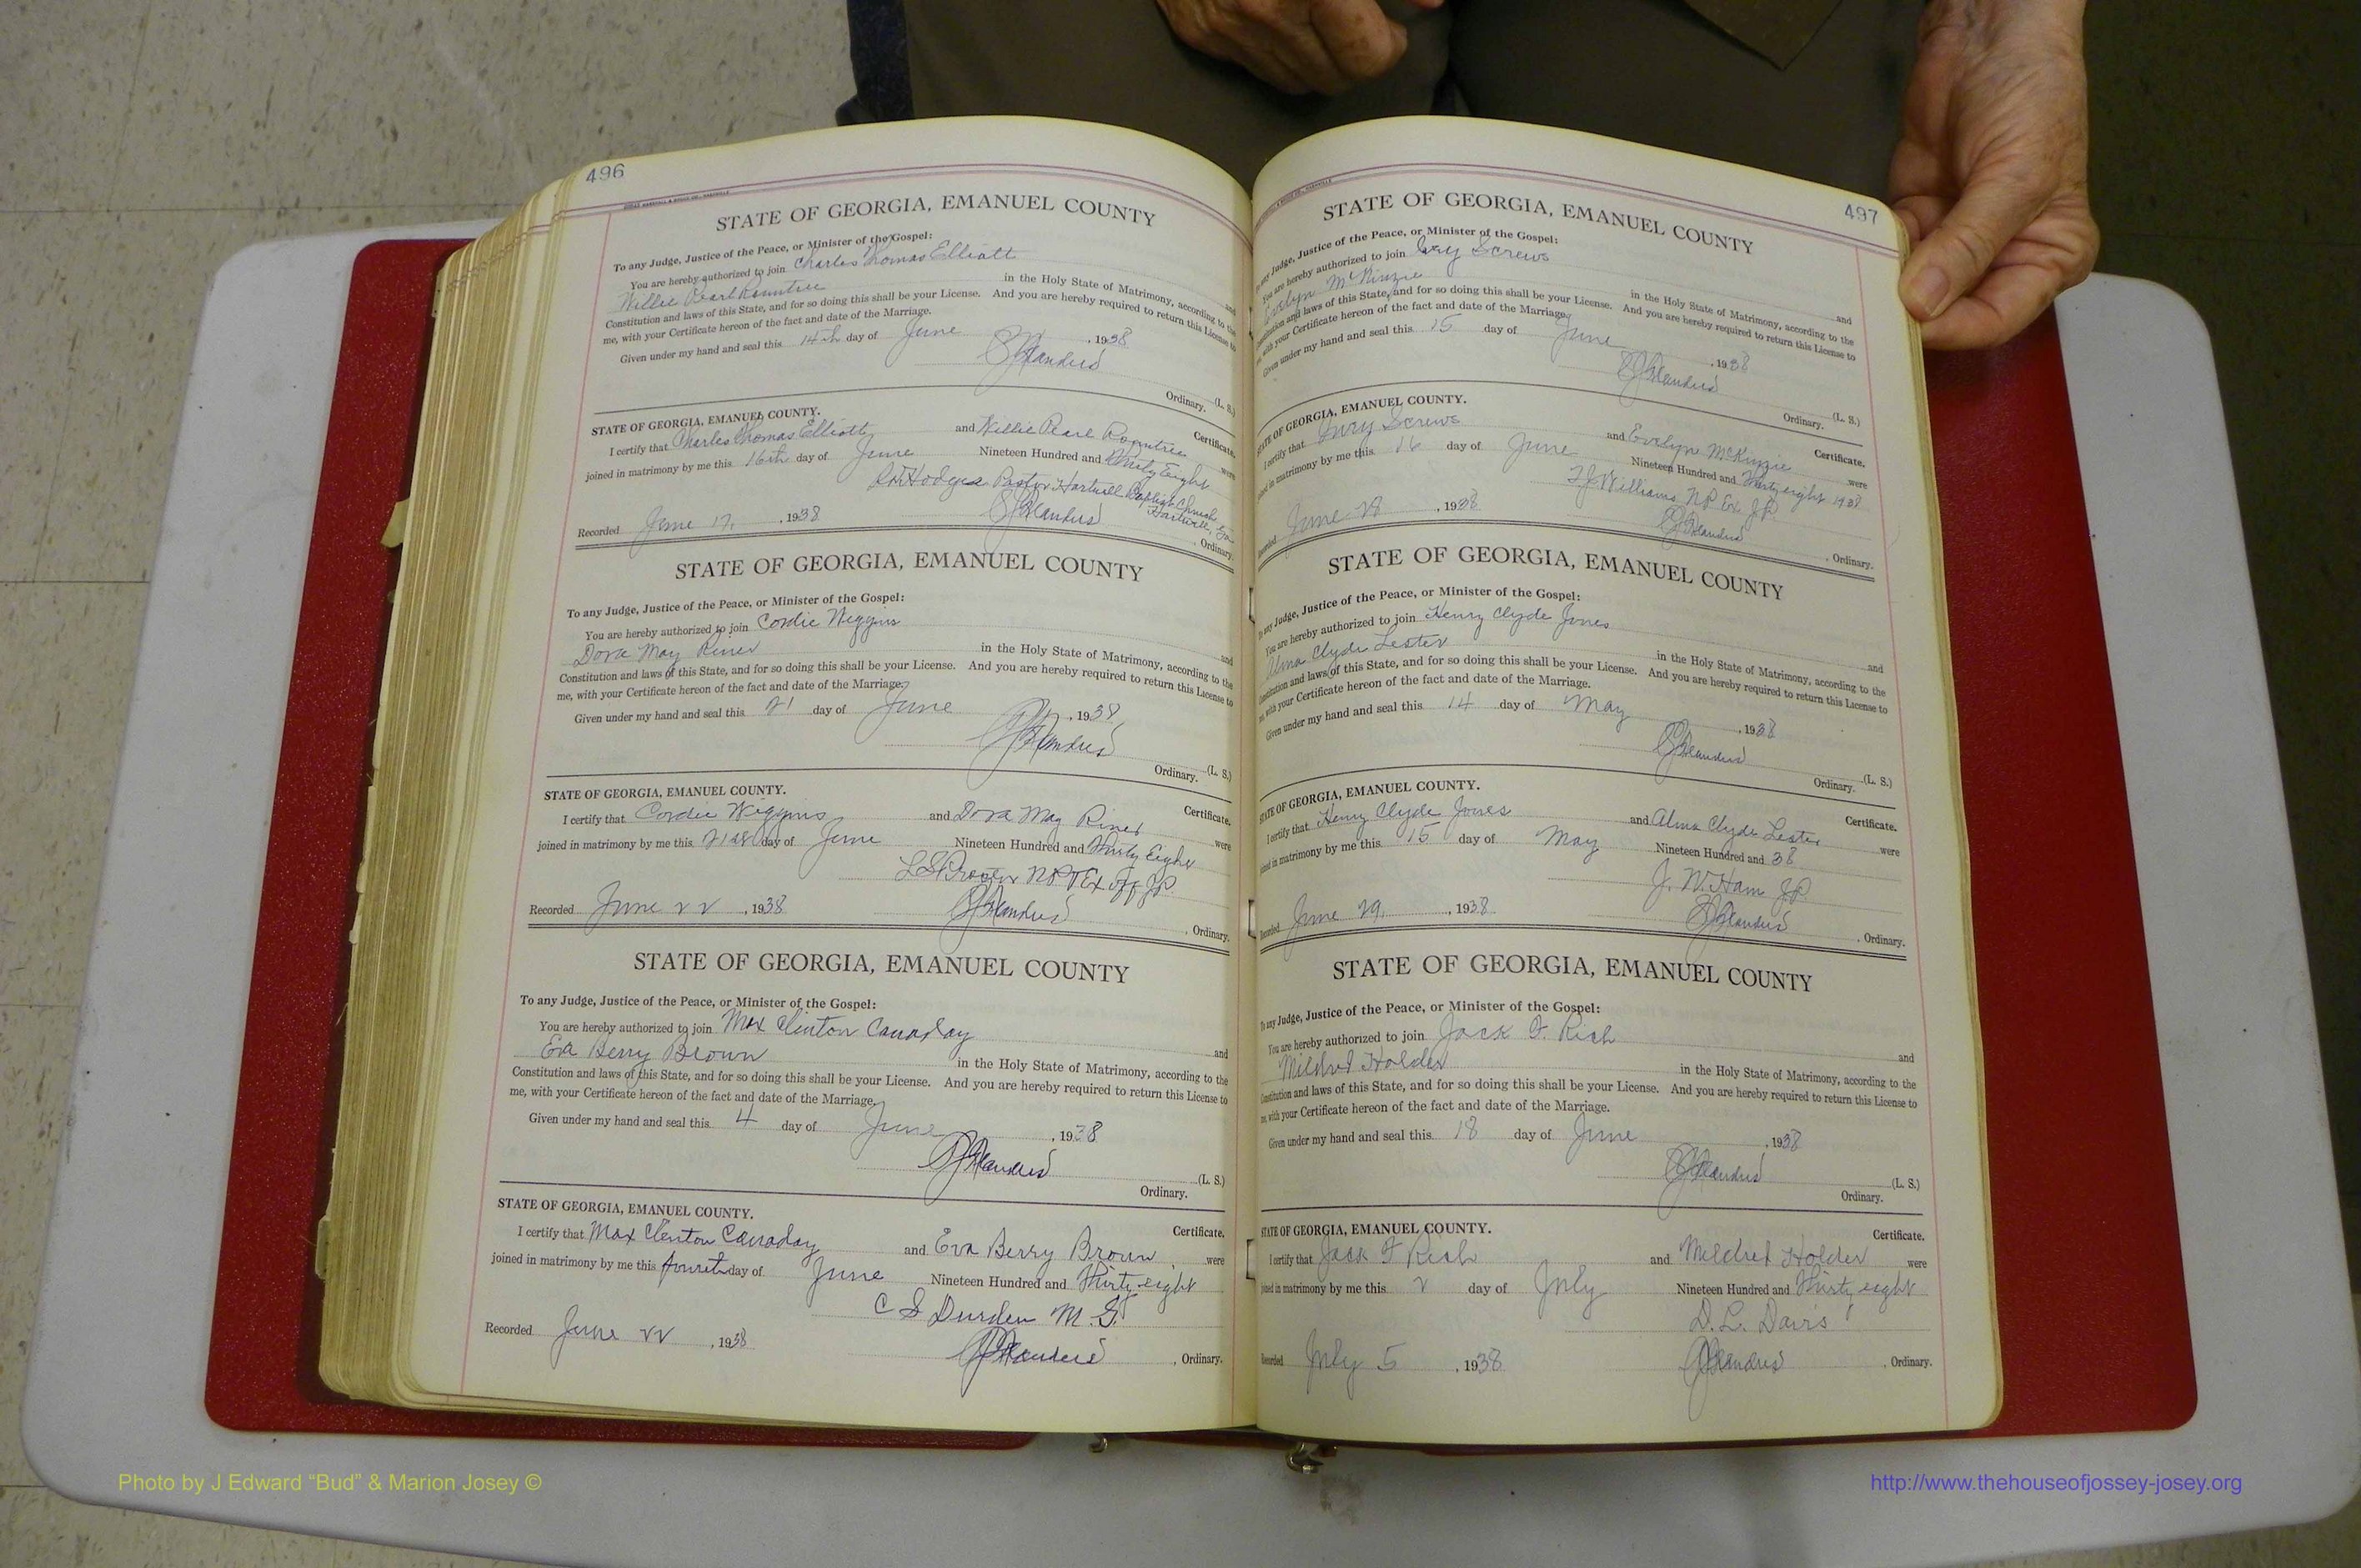 496
STATE OF GEORGIA, EMANUEL COUNTY
To any Judge, Justice of the Peace, or Minister of the Gospel:
You are hereby authorized to join Charles Thomas Elliott and
Willie Pearl Rountree in the Holy State of Matrimony, according to the
Constitution and laws of this State, and for so doing this shall be your License. And you are hereby required to return this License to
me, with your Certificate hereon of the fact and date of the Marriage.
Given under my hand and seal this 14th day of June, 1938
(L. S.)
Ordinary.
STATE OF GEORGIA, EMANUEL COUNTY. Certificate.
I certify that Charles Thomas Elliott and Willie Pearl Rountree were
joined in matrimony by me this 16th day of June Nineteen Hundred and Thirty Eight
Hodges Pastor Hartwell Baptist Church
Hartwell, Ga
Recorded June 17, 1938
Ordinary.
STATE OF GEORGIA, EMANUEL COUNTY
To any Judge, Justice of the Peace, or Minister of the Gospel:
You are hereby authorized to join Cordie Wiggins and
Dora May Riner in the Holy State of Matrimony, according to the
Constitution and laws of this State, and for so doing this shall be your License. And you are hereby required to return this License to
me, with your Certificate hereon of the fact and date of the Marriage.
Given under my hand and seal this 21 day of June, 1938
(L. S.)
Ordinary.
STATE OF GEORGIA, EMANUEL COUNTY. Certificate.
I certify that Cordie Wiggins and Dora May Riner were
joined in matrimony by me this 21st day of June Nineteen Hundred and Thirty Eight
Recorded June 22, 1938
Ordinary.
STATE OF GEORGIA, EMANUEL COUNTY
To any Judge, Justice of the Peace, or Minister of the Gospel:
You are hereby authorized to join Max Clinton Canaday and
Eva Berry Brown in the Holy State of Matrimony, according to the
Constitution and laws of this State, and for so doing this shall be your License. And you are hereby required to return this License to
me, with your Certificate hereon of the fact and date of the Marriage.
Given under my hand and seal this 4 day of June, 1938
(L. S.)
Ordinary.
STATE OF GEORGIA, EMANUEL COUNTY. Certificate.
I certify that Max Clinton Canaday and Eva Berry Brown were
joined in matrimony by me this day of June Nineteen Hundred and Thirty eight
C S Durden M. G.
Recorded June 22, 1938
Ordinary.
497
STATE OF GEORGIA, EMANUEL COUNTY
any Judge, Justice of the Peace, or Minister of the Gospel:
You are hereby authorized to join Ivry Screws and
Evelyn McKinzie in the Holy State of Matrimony, according to the
and laws of this State, and for so doing this shall be your License. And you are hereby required to return this License to
with your Certificate hereon of the fact and date of the Marriage.
Given under my hand and seal this 15 day of June, 1938
(L. S.)
Ordinary.
STATE OF GEORGIA, EMANUEL COUNTY. Certificate.
I certify that Ivry Screws and Evelyn McKinzie were
in matrimony by me this 16 day of June Nineteen Hundred and Thirty eight 1938
Williams NP Ex J.P.
June 28, 1938
Ordinary.
STATE OF GEORGIA, EMANUEL COUNTY
any Judge, Justice of the Peace, or Minister of the Gospel:
You are hereby authorized to join Henry Clyde Jones and
Alma Clyde Lester in the Holy State of Matrimony, according to the
and laws of this State, and for so doing this shall be your License. And you are hereby required to return this License to
with your Certificate hereon of the fact and date of the Marriage.
Given under my hand and seal this 14 day of May, 1938
(L. S.)
Ordinary.
STATE OF GEORGIA, EMANUEL COUNTY. Certificate.
I certify that Henry Clyde Jones and Alma Clyde Lester were
in matrimony by me this 15 day of May Nineteen Hundred and 38
J. W. Ham J.P.
Recorded June 29, 1938
Ordinary.
STATE OF GEORGIA, EMANUEL COUNTY
any Judge, Justice of the Peace, or Minister of the Gospel:
You are hereby authorized to join Jack F. Rich and
Mildred Holder in the Holy State of Matrimony, according to the
Constitution and laws of this State, and for so doing this shall be your License. And you are hereby required to return this License to
me, with your Certificate hereon of the fact and date of the Marriage.
Given under my hand and seal this 18 day of June, 1938
(L. S.)
Ordinary.
STATE OF GEORGIA, EMANUEL COUNTY. Certificate.
I certify that Jack F Rich and Mildred Holder were
joined in matrimony by me this 2 day of July Nineteen Hundred and Thirty eight
D. L. Davis
Recorded July 5, 1938
Ordinary.
Photo by J Edward “Bud” & Marion Josey ©
http://www.thehouseofjossey-josey.org